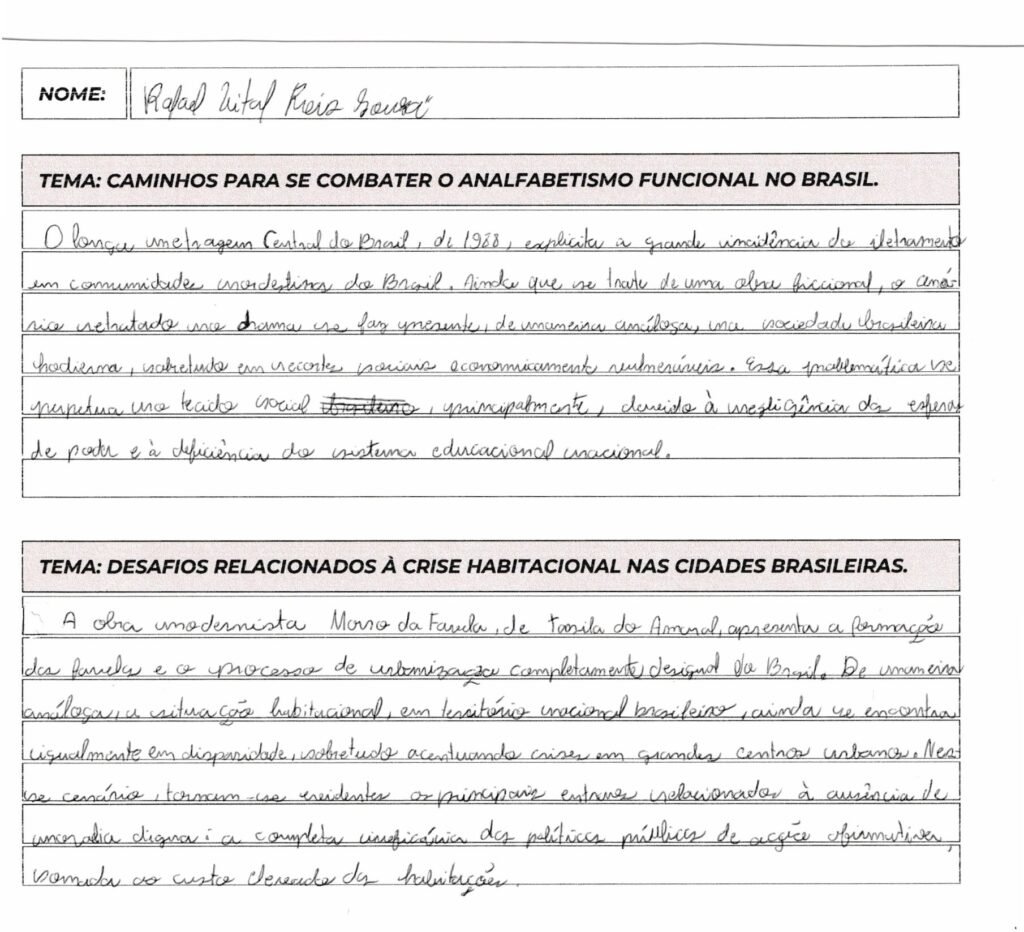 NOME: Rafael Vital Reis Sousa
TEMA: CAMINHOS PARA SE COMBATER O ANALFABETISMO FUNCIONAL NO BRASIL.
O longa metragem Central do Brasil, de 1988, explicita a grande incidência do iletramento
em comunidades nordestinas do Brasil. Ainda que se trate de uma obra ficcional, o cená-
rio retratado no drama se faz presente, de maneira análoga, na sociedade brasileira
hodierna, sobretudo em recortes sociais economicamente vulneráveis. Essa problemática se
perpetua no tecido social brasileiro, principalmente, devido à negligência das esferas
de poder e à deficiência do sistema educacional nacional.
TEMA: DESAFIOS RELACIONADOS À CRISE HABITACIONAL NAS CIDADES BRASILEIRAS.
A obra modernista Morro da Favela, de Tarsila do Amaral, apresenta a formação
das favelas e o processo de urbanização completamente desigual do Brasil. De maneira
análoga, a situação habitacional, em território nacional brasileiro, ainda se encontra
igualmente em disparidade, sobretudo acentuando crises em grandes centros urbanos. Nes-
se cenário, tornam-se evidentes os principais entraves relacionados à ausência de
moradia digna: a completa ineficácia das políticas públicas de acção afirmativa,
somada ao custo elevado das habitações.